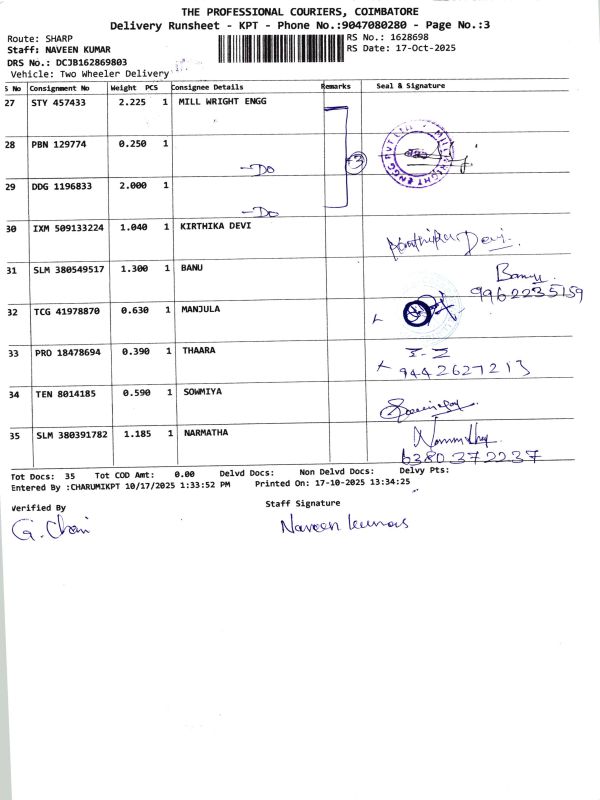 THE PROFESSIONAL COURIERS, COIMBATORE
Delivery Runsheet - KPT - Phone No.:9047080280 - Page No.:3
Route: SHARP RS No.: 1628698
Staff: NAVEEN KUMAR RS Date: 17-Oct-2025
DRS No.: DCJB162869803
Vehicle: Two Wheeler Delivery
S No Consignment No Weight PCS Consignee Details Remarks Seal & Signature
27 STY 457433 2.225 1 MILL WRIGHT ENGG
28 PBN 129774 0.250 1
-Do
29 DDG 1196833 2.000 1
-Do
30 IXM 509133224 1.040 1 KIRTHIKA DEVI
Devi
31 SLM 380549517 1.300 1 BANU Banu
9962235159
32 TCG 41978870 0.630 1 MANJULA
33 PRO 18478694 0.390 1 THAARA
9442627213
34 TEN 8014185 0.590 1 SOWMIYA
35 SLM 380391782 1.185 1 NARMATHA
6380372237
Tot Docs: 35 Tot COD Amt: 0.00 Delvd Docs: Non Delvd Docs: Delvy Pts:
Entered By :CHARUMIKPT 10/17/2025 1:33:52 PM Printed On: 17-10-2025 13:34:25
Verified By Staff Signature
Naveen Kumar